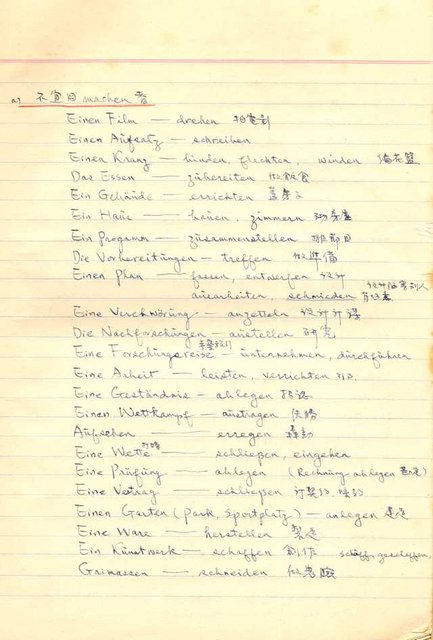 a) 不宜用 machen 者
Einen Film — drehen 拍電影
Einen Aufsatz — schreiben
Einen Kranz — binden, flechten, winden 編花籃
Das Essen — zubereiten 做飯食
Ein Gebäude — errichten 蓋房子
Ein Haus — bauen, zimmern
Ein Programm — zusammenstellen 排節目
Die Vorbereitungen — treffen 做準備
Einen Plan — fassen, entwerfen 设计
ausarbeiten, schmieden
Eine Verschwörung — anzetteln 设计
Die Nachforschungen — anstellen 研究
Eine Forschungsreise — unternehmen, durchführen
Eine Arbeit — leisten, verrichten
Eine Geständnis — ablegen 招認
Einen Wettkampf — austragen 决勝
Aufsehen — erregen 轟動
Eine Wette 打賭 — schließen, eingehen
Eine Prüfung — ablegen (Rechnung ablegen)
Eine Vertrag — schließen 訂契約
Einen Garten (Park, Sportplatz) — anlegen 建造
Eine Ware — herstellen 製造
Ein Kunstwerk — schaffen 創作 schuf, geschaffen,
Grimassen — schneiden 做鬼臉